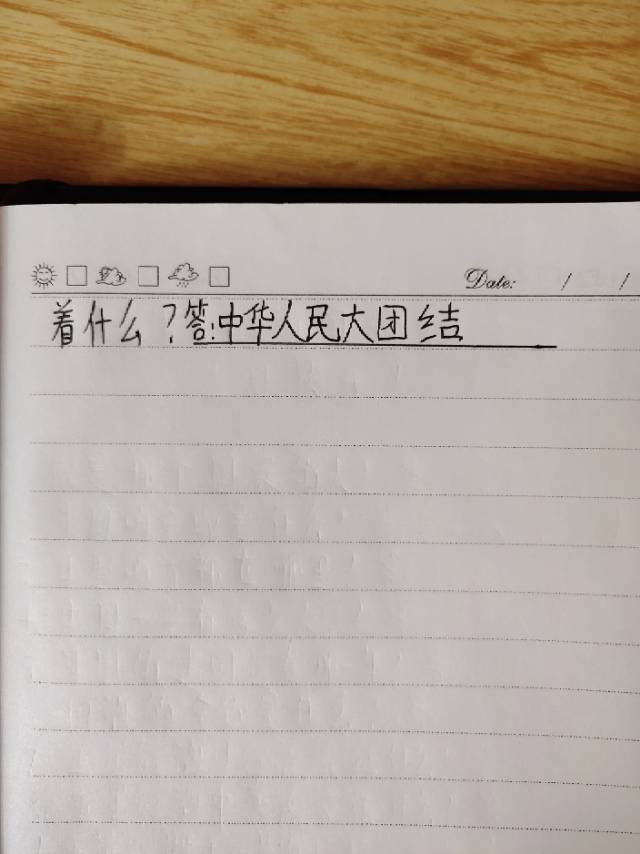 Date: / /
着什么？答:中华人民大团结